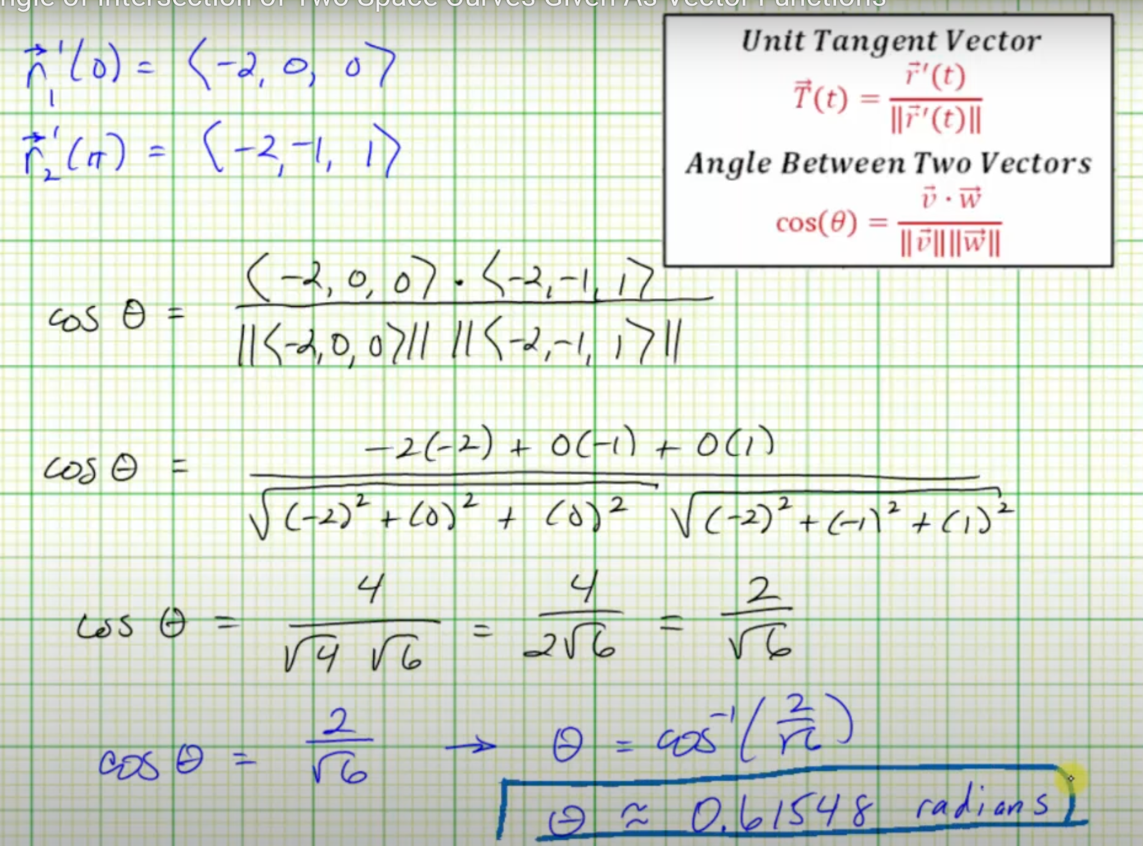 ngle of Intersection of Two Space Curves Given As Vector Functions
r⃗₁'(0) = ⟨-2, 0, 0⟩
r⃗₂'(π) = ⟨-2, -1, 1⟩
Unit Tangent Vector
T⃗(t) = r⃗'(t) / ||r⃗'(t)||
Angle Between Two Vectors
cos(θ) = v⃗ · w⃗ / ||v⃗|| ||w⃗||
cos θ = ⟨-2, 0, 0⟩ · ⟨-2, -1, 1⟩ / ||⟨-2, 0, 0⟩|| ||⟨-2, -1, 1⟩||
cos θ = -2(-2) + 0(-1) + 0(1) / √(-2)² + (0)² + (0)² √(-2)² + (-1)² + (1)²
cos θ = 4 / √4 √6 = 4 / 2√6 = 2 / √6
cos θ = 2 / √6 → θ = cos⁻¹(2 / √6)
θ ≈ 0.61548 radians